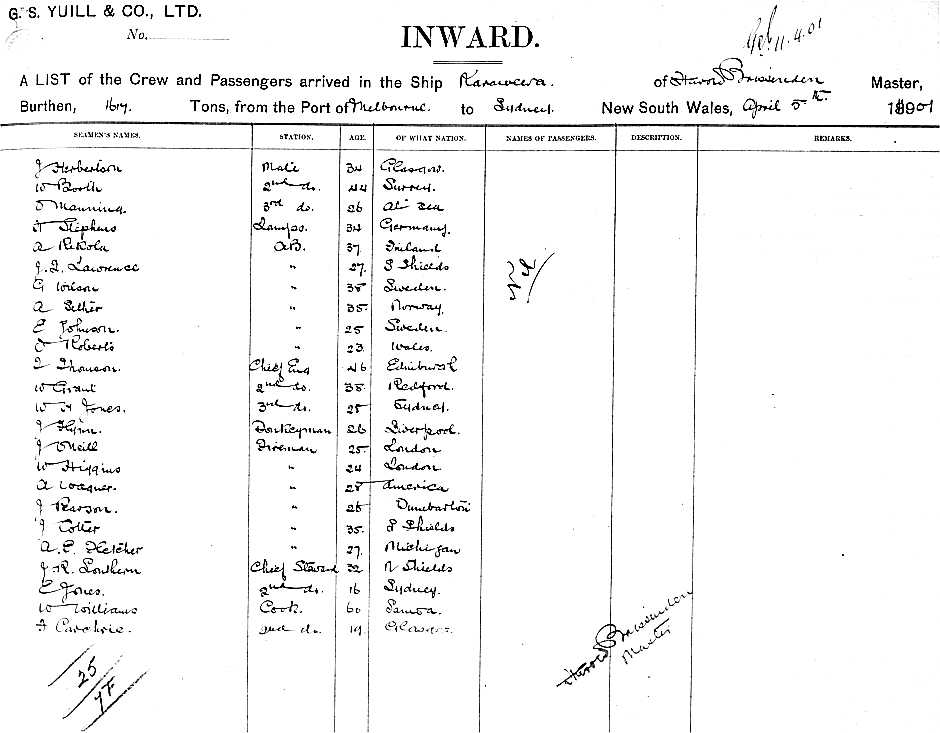 G. S. YUILL & CO., LTD.
No.
INWARD.
11.4.01
A LIST of the Crew and Passengers arrived in the Ship of Harold Brissenden Master,
Burthen, Tons, from the Port of Melbourne. to Sydney. New South Wales, April 5th. 1901
SEAMEN'S NAMES. STATION. AGE. OF WHAT NATION. NAMES OF PASSENGERS. DESCRIPTION. REMARKS.
J Herbertson Mate 34 Glasgow.
W Booth 2nd do. 44 Surrey.
Manning. 3rd do. 26 At Sea
Stephens Lamps. 34 Germany.
A A.B. 37
J. Lawrence " 27. S Shields
G Wilson " 38 Sweden.
A " 35. Norway.
E Johnson. " 25 Sweden.
Roberts " 23. Wales.
Thomson. Chief Eng 46
W Grant 2nd do. 38.
W H Jones. 3rd do. 25 Sydney.
J Flynn. Donkeyman 26 Liverpool.
J O'Neill Fireman 25. London
W Higgins " 24 London
A " 28 America
J Pearson. " Dumbarton
J Cotter " 35. S Shields
A. E. Fletcher " 27. Michigan
J. R. Southern Chief Steward 32 N Shields
E Jones. 2nd do. 16 Sydney.
W Williams Cook. 60 Samoa.
2nd do. 19. Glasgow.
Nil
25
Harold Brissenden
Master